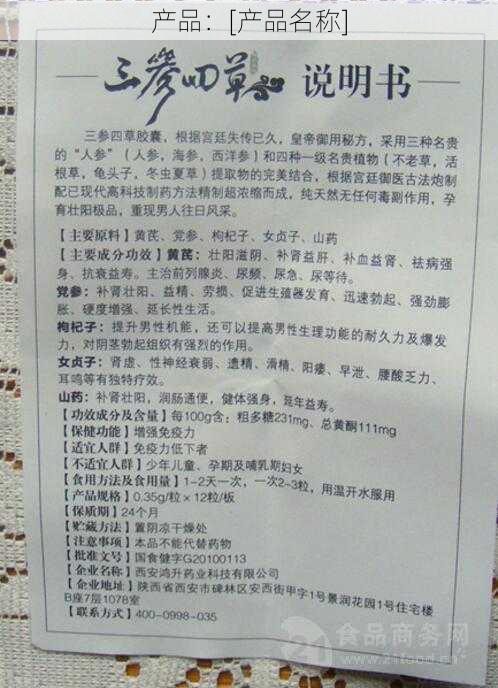 产品：[产品名称]
三参四草 说明书
三参四草胶囊，根据宫廷失传已久，皇帝御用秘方，采用三种名贵
的“人参”（人参，海参，西洋参）和四种一级名贵植物（不老草，活
根草，龟头子，冬虫夏草）提取物的完美结合，根据宫廷御医古法炮制
配已现代高科技制药方法精制超浓缩而成，纯天然无任何毒副作用，孕
育壮阳极品，重现男人往日风采。
【主要原料】黄芪、党参、枸杞子、女贞子、山药
【主要成分功效】黄芪：壮阳滋阴、补肾益肝、补血益肾、祛病强
身、抗衰益寿。主治前列腺炎、尿频、尿急、尿等待。
党参：补肾壮阳、益精、劳损、促进生殖器发育、迅速勃起、强劲膨
胀、硬度增强、延长性生活。
枸杞子：提升男性机能，还可以提高男性生理功能的耐久力及爆发
力，对阴茎勃起组织有强烈的作用。
女贞子：肾虚、性神经衰弱、遗精、滑精、阳痿、早泄、腰酸乏力、
耳鸣等有独特疗效。
山药：补肾壮阳，润肠通便，健体强身，延年益寿。
【功效成分及含量】每100g含：粗多糖231mg、总黄酮111mg
【保健功能】增强免疫力
【适宜人群】免疫力低下者
【不适宜人群】少年儿童、孕期及哺乳期妇女
【食用方法及食用量】1-2天一次，一次2-3粒，用温开水服用
【产品规格】0.35g/粒×12粒/板
【保质期】24个月
【贮藏方法】置阴凉干燥处
【注意事项】本品不能代替药物
【批准文号】国食健字G20100113
【企业名称】西安鸿升药业科技有限公司
【企业地址】陕西省西安市碑林区安西街甲字1号景润花园1号住宅楼
B座7层1078室
【联系方式】400-0998-035
食品商务网
21food.cn